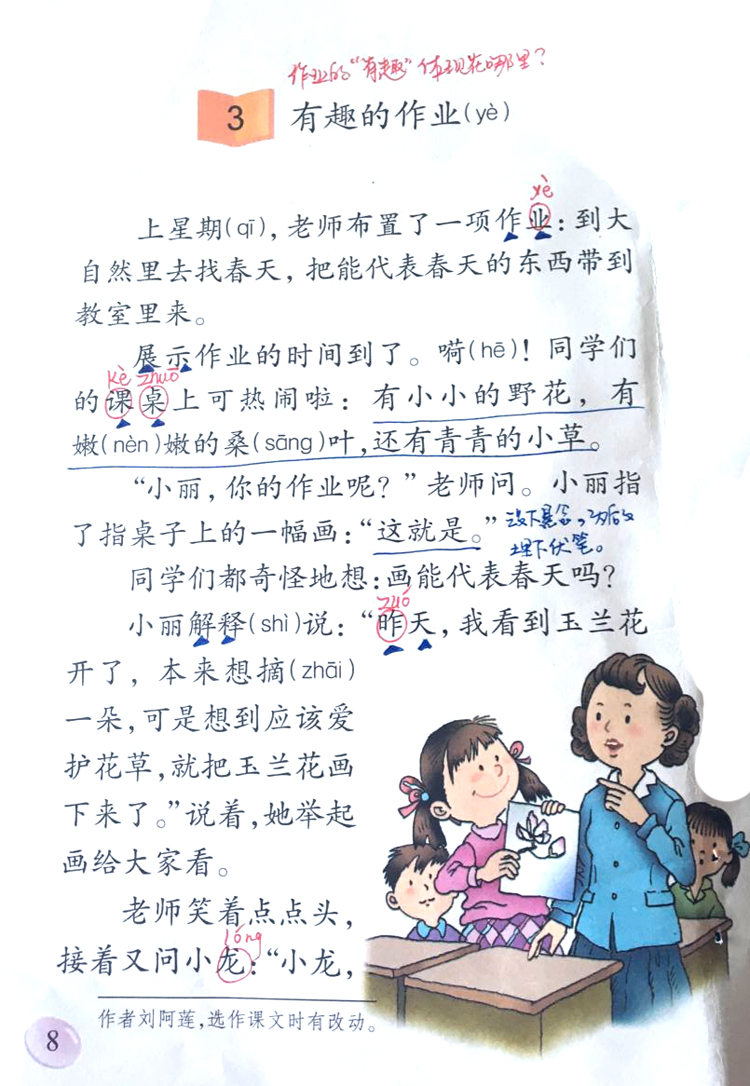 作业的“有趣”体现在哪里？
3 有趣的作业(yè)
yè
上星期(qī)，老师布置了一项作业：到大
自然里去找春天，把能代表春天的东西带到
教室里来。
展示作业的时间到了。嗬(hē)！同学们
kè zhuō
的课桌上可热闹啦：有小小的野花，有
嫩(nèn)嫩的桑(sāng)叶，还有青青的小草。
“小丽，你的作业呢？”老师问。小丽指
了指桌子上的一幅画：“这就是。”
设下悬念，为后文
埋下伏笔。
同学们都奇怪地想：画能代表春天吗？
zuó
小丽解释(shì)说：“昨天，我看到玉兰花
开了，本来想摘(zhāi)
一朵，可是想到应该爱
护花草，就把玉兰花画
下来了。”说着，她举起
画给大家看。
老师笑着点点头，
lóng
接着又问小龙：“小龙，
作者刘阿莲，选作课文时有改动。
8